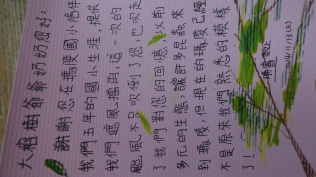 大榕樹爺爺奶奶您好：
謝謝您在瑪陵國小陪伴
我們五年的國小生涯，提供
我們遮風擋雨，這一次的
颱風不只吹倒了您，也吹走
了我們對您的回憶，以前
多元的生態，讓許多昆蟲來
到瑪陵，但現在的瑪陵已經
不是原來我們熟悉的模樣
了！
敬上
2024/11/13(三)